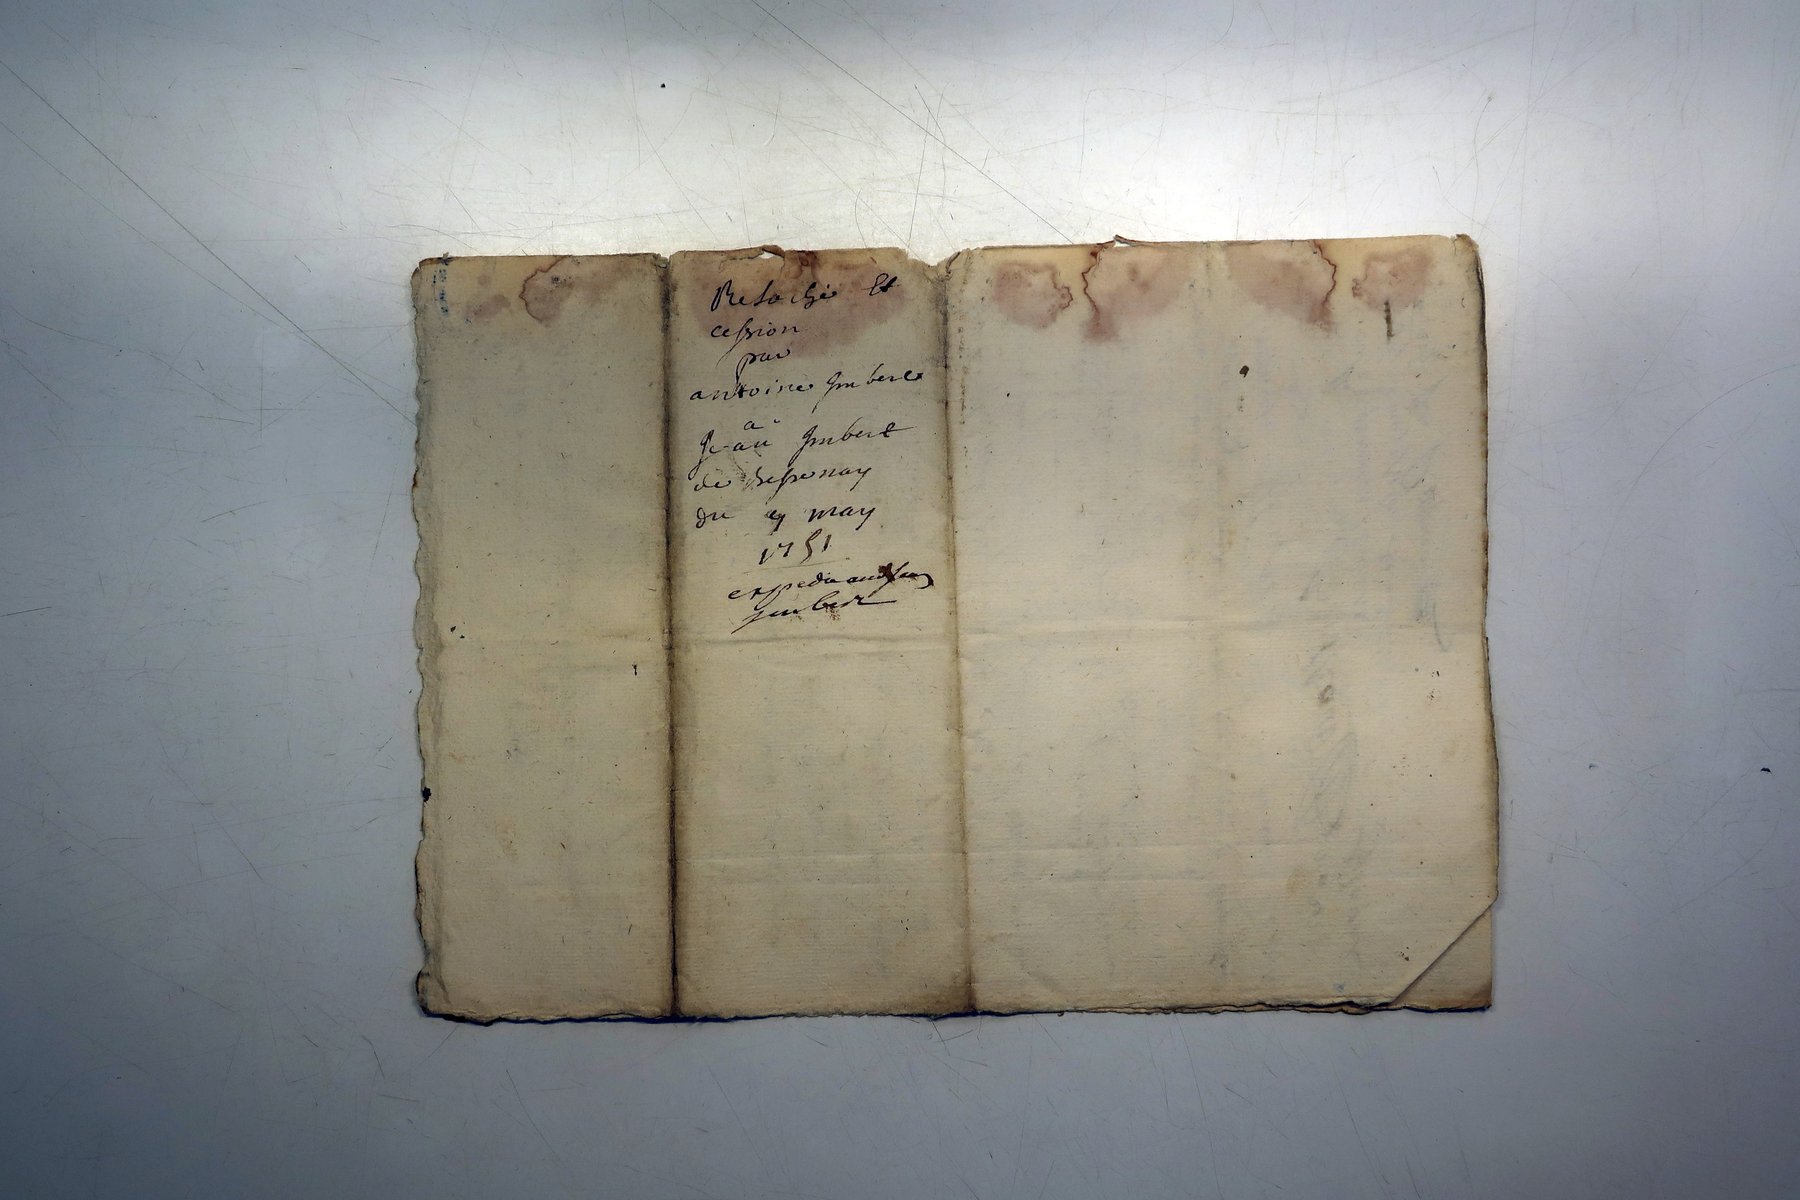 Relache Et
cession
par
antoine Imbert
a
Jean Imbert
de Bessenay
du 9 may
1751
expedie aud Jean
Imbert